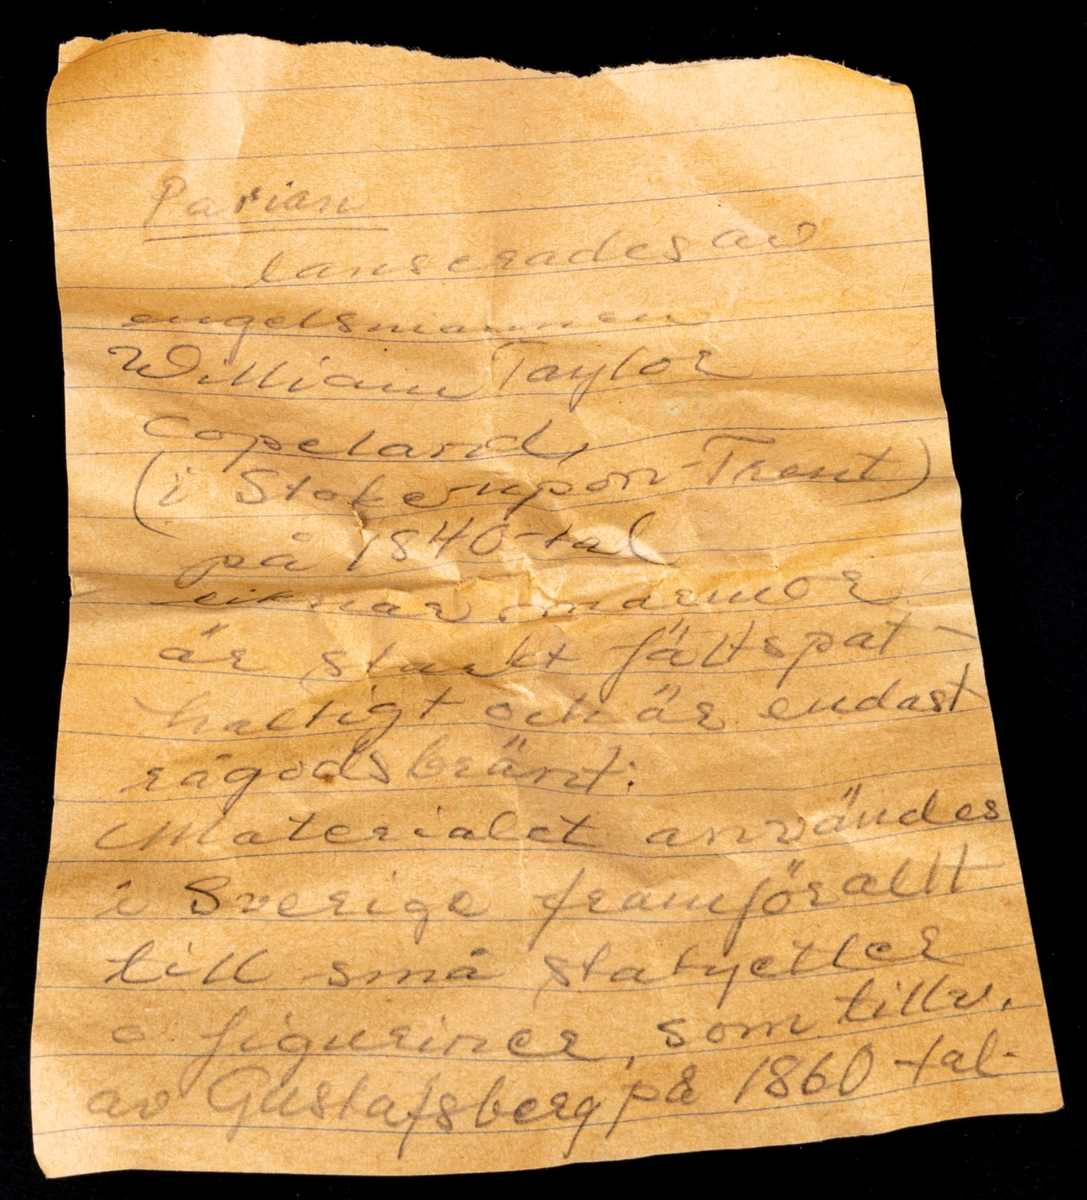 Parian
lanserades av
engelsmannen
William Taylor
Copeland,
(i Stokeupon-Trent)
på 1840-tal
liknar marmor
är starkt fältspat-
haltigt och är endast
rågodsbränt.
Materialet användes
i Sverige framförallt
till små statyetter
o figuriner, som tillv.
av Gustafsberg på 1860-tal-